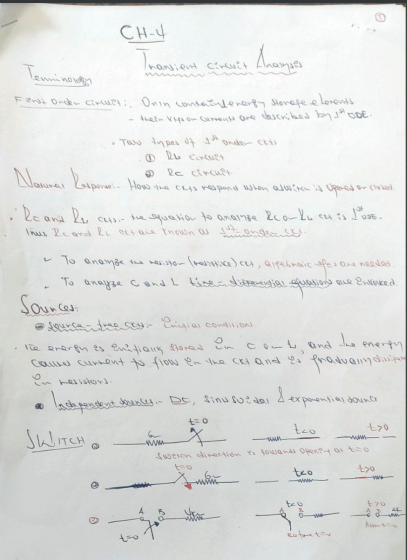 ①
CH-4
Transient circuit Analysis
Terminology
First order circuit:. Only contain energy storage elements
- their VTG or currents are described by 1st ODE.
• Two types of 1st order ckts
① RL circuit
② RC circuit
Natural Response:- How the ckts respond when a switch is opened or closed.
• RC and RL ckts:- the equation to analyze RC or RL ckt is 1st ODE.
thus RC and RL ckt are known as 1st order ckt.
To analyze the resistor (resistive) ckt, algebraic eqns are needed.
To analyze C and L time-differential equations are involved.
Sources:
source-free ckts:- Initial condition
• The energy is initially stored in C or L, and the energy
causes current to flow in the ckt and is gradually dissipated
in resistors.
Independent sources:- DC, sinusoidal & exponential source
SWITCH
t=0
t<0
t>0
direction is towards opening at t=0
t=0
t<0
t>0
A B
t=0
t<0
t>0